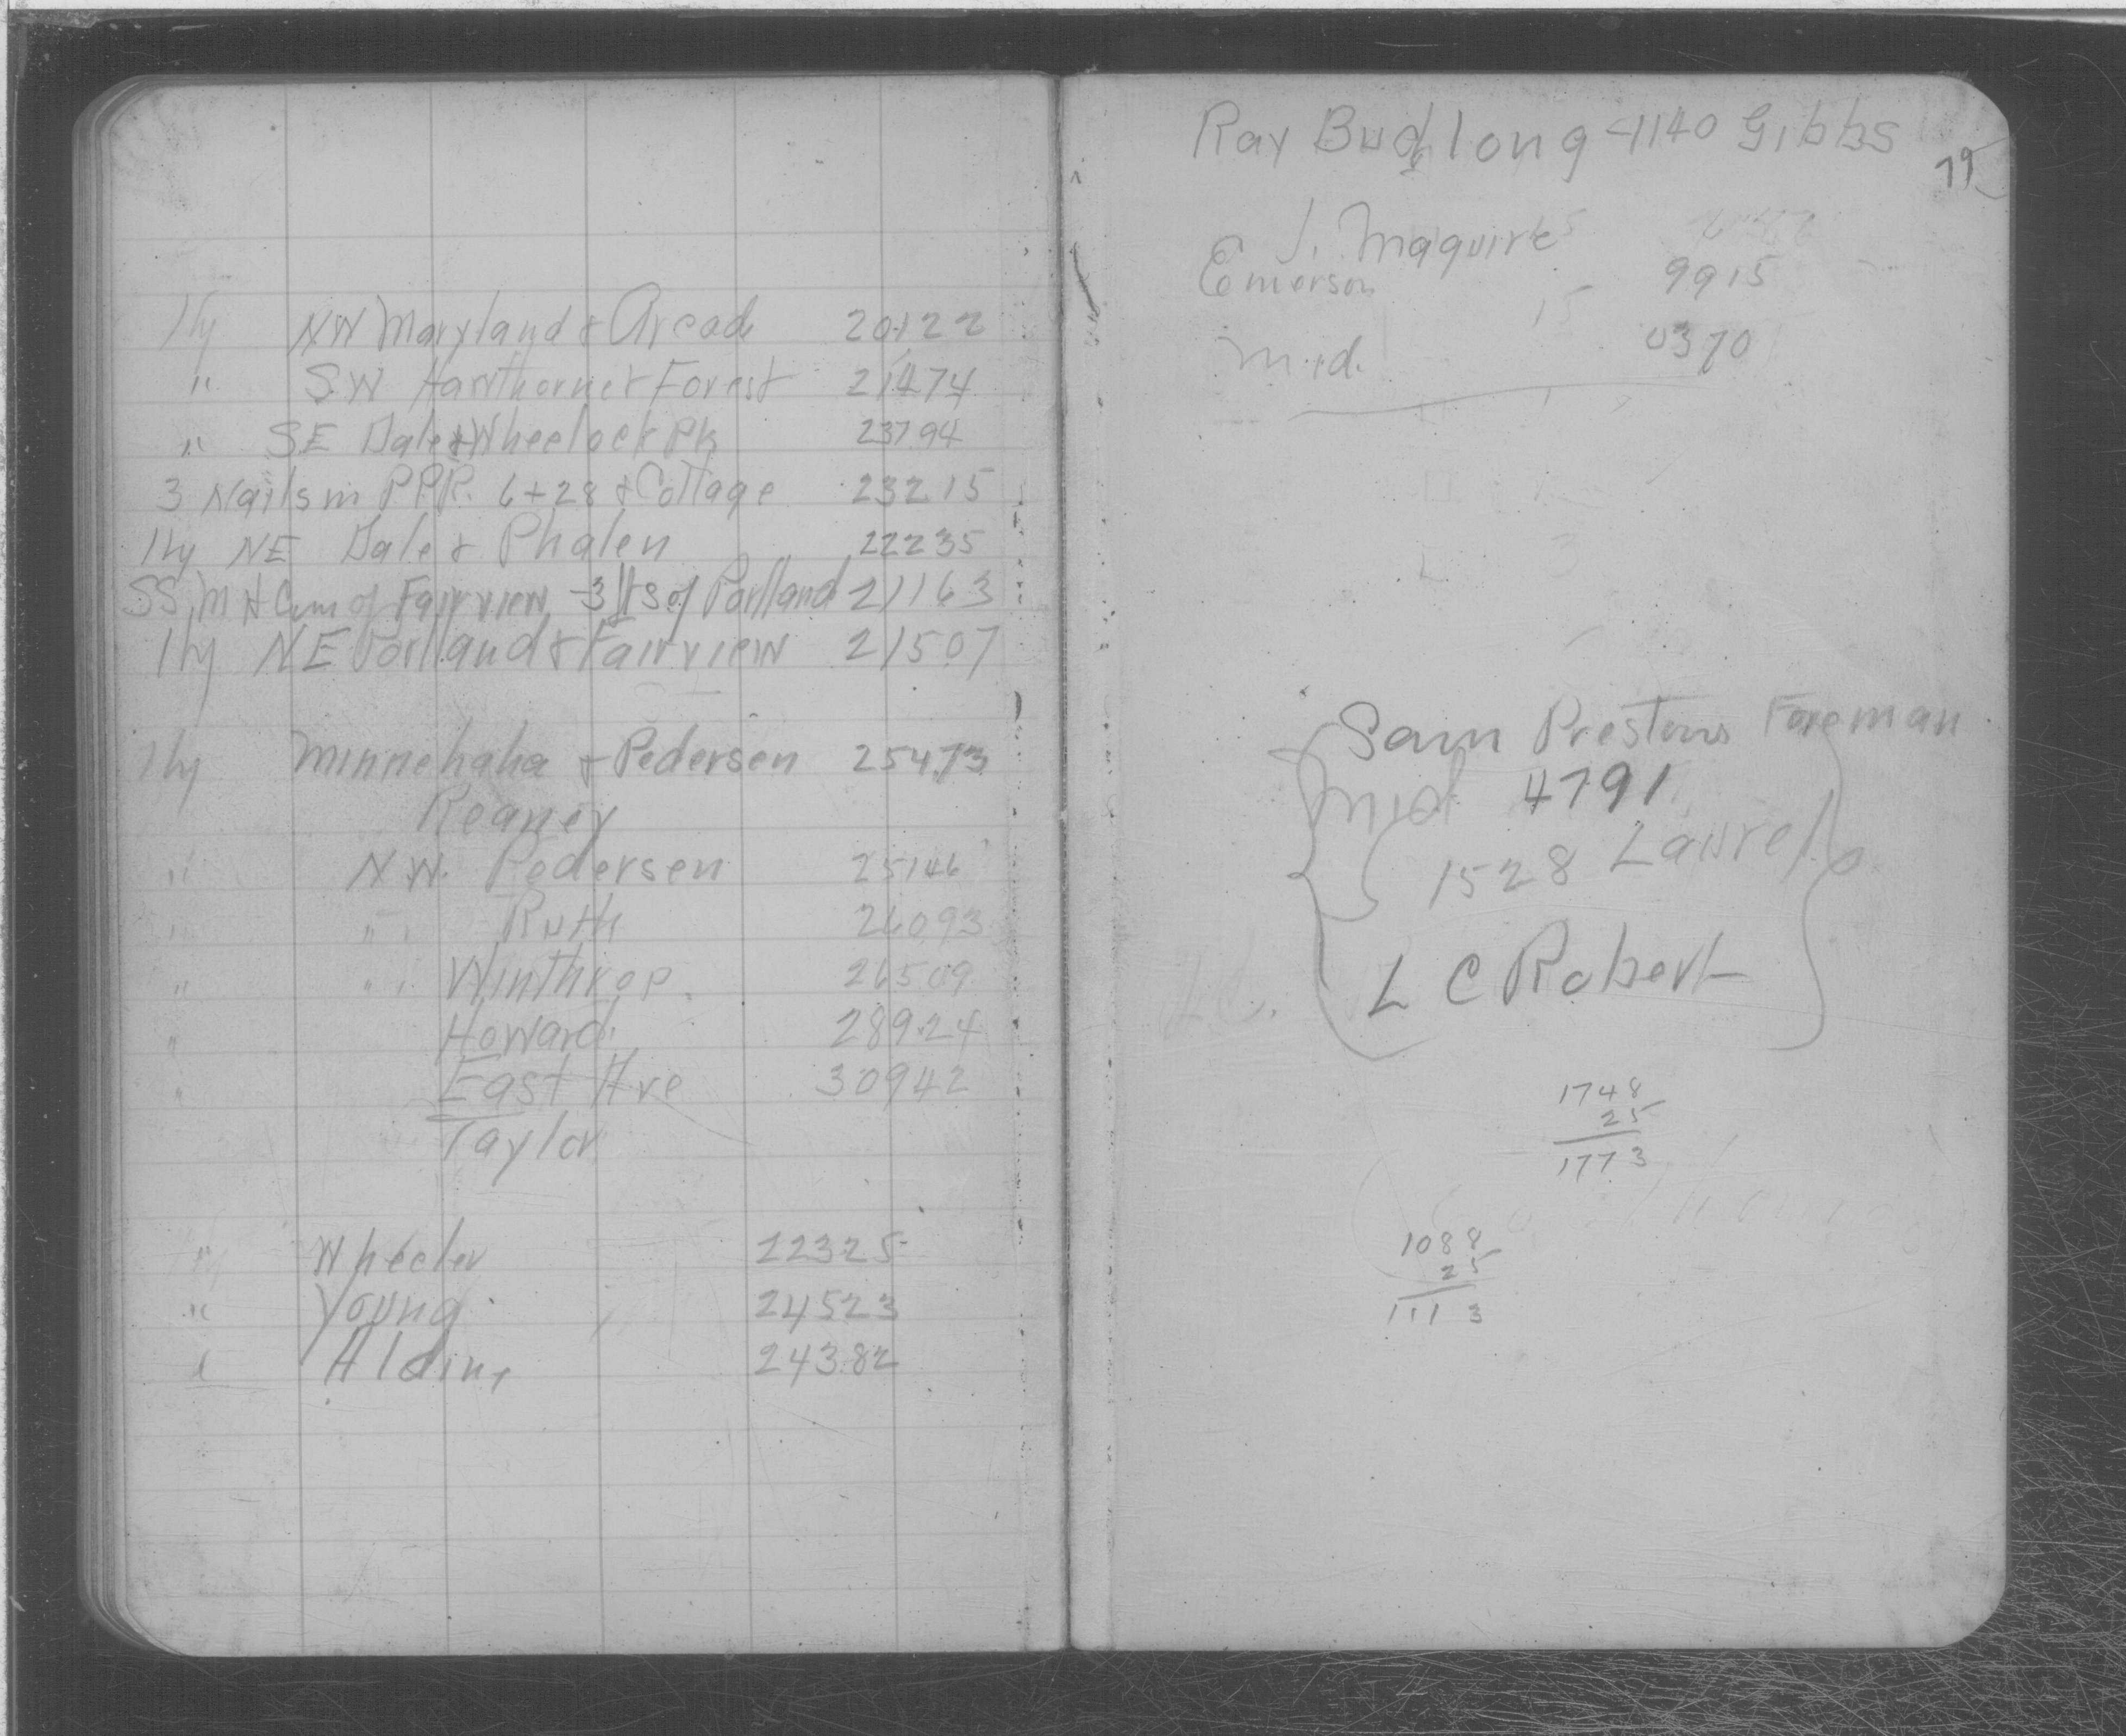 Hy NW Maryland & Arcade 20122
" S.W Hawthorne & Forest 21474
" SE Dale & Wheelock Pk 23794
3 Nails in P.P.R. 6+28 & Cottage 23215
Hy NE Dale & Phalen 22235
SS, M H Cum of Fairview -3 ft S of Portland 21163
Hy NE Portland & Fairview 21507
Hy Minnehaha & Pedersen 25473
Reaney
" N W. Pedersen 25146
" " Ruth 26093
" " Winthrop. 26509
" Howard 28924
" East Ave 30942
Taylor
" Wheeler 22325
" Young 24523
" Aldine 24382
Ray Budlong - 1140 Gibbs
79
J. Maguire
Emerson 9915
15
Mid. 0370
Sam Prestons Foreman
Mid 4791
1528 Laurel
L C Robert
1748
25
1773
1088
25
1113